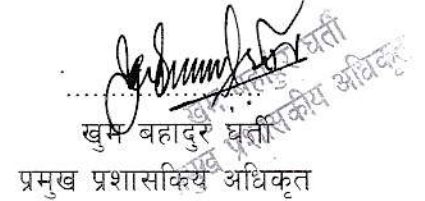 खुम बहादुर घर्ती
प्रमुख प्रशासकिय अधिकृत
खुम बहादुर घर्ती
प्रमुख प्रशासकीय अधिकृत